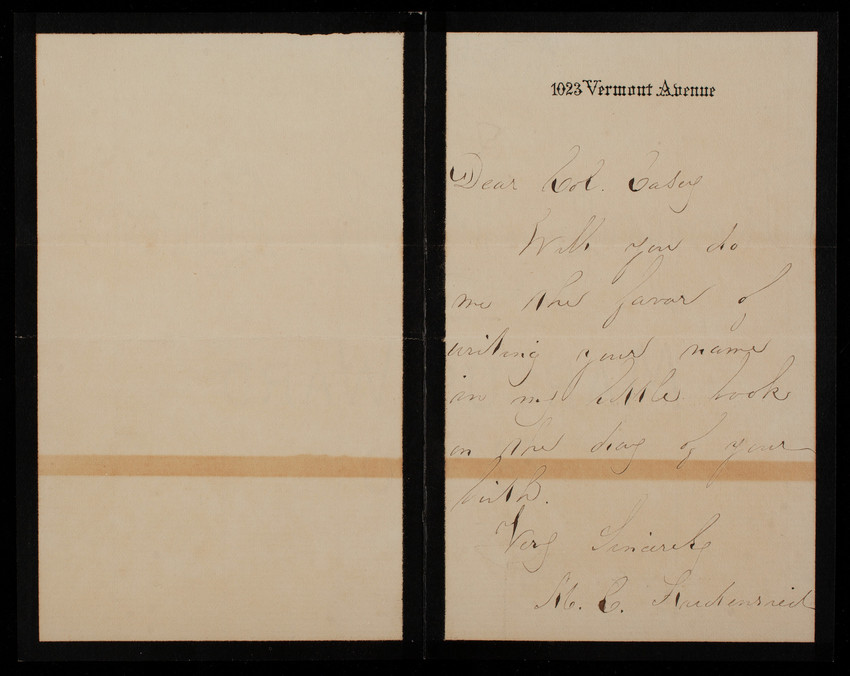 1023 Vermont Avenue
Dear Col. Casey
Will you do
me the favor of
writing your name
in my little book
on the day of your
birth.
Very Sincerely
M. C.